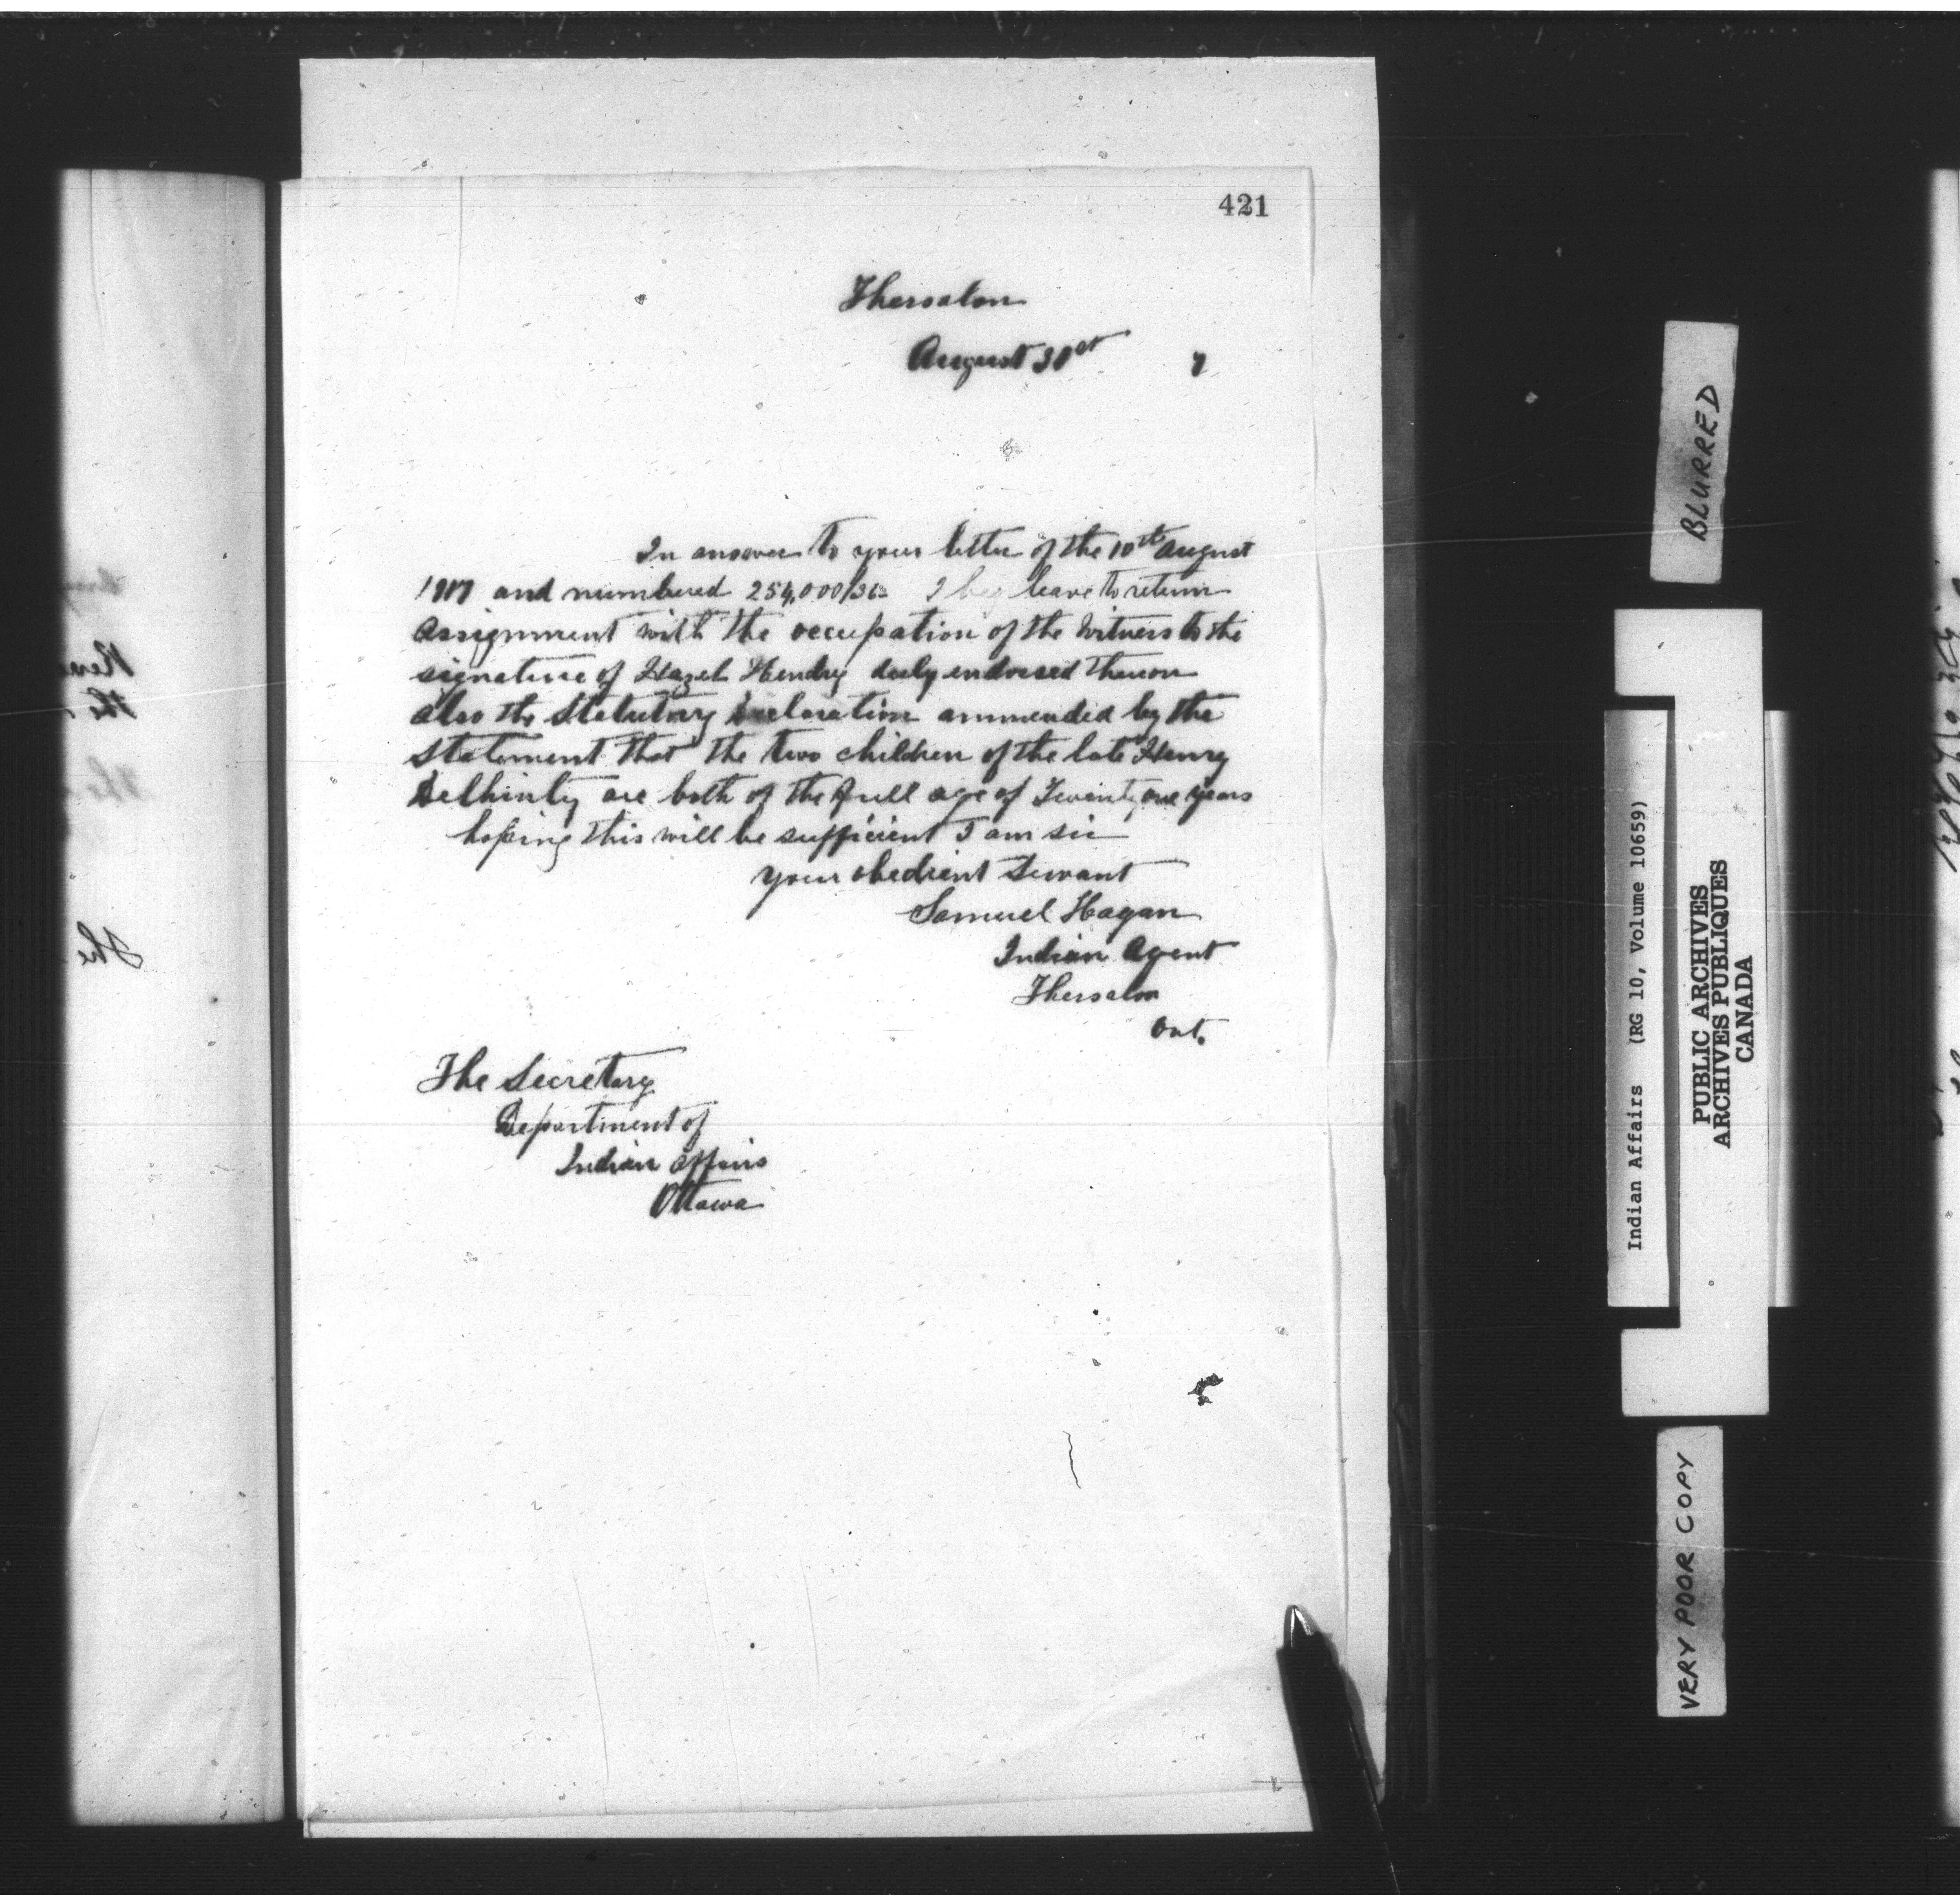 421
Thessalon
August 31st 7
In answer to your letter of the 10th August
1917 and numbered 254,000/36 I beg leave to return
Assignment with the occupation of the Witness to the
signature of Hazel Hendry duly endorsed thereon
also the Statutory declaration ammended by the
statement that the two children of the late Henry
are both of the full age of Twenty one years
hoping this will be sufficient I am sir
your obedient Servant
Samuel Hagan
Indian Agent
Thessalon
Ont.
The Secretary
Department of
Indian Affairs
Ottawa
BLURRED
Indian Affairs (RG 10, Volume 10659)
PUBLIC ARCHIVES
ARCHIVES PUBLIQUES
CANADA
VERY POOR COPY